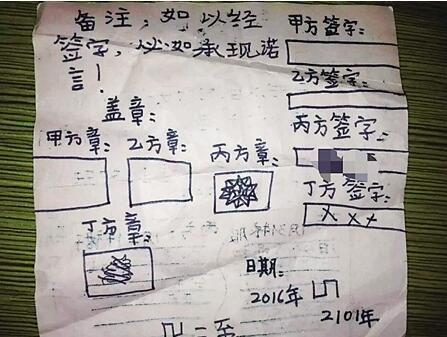 备注；如以经
签字，必如承现诺
言！
甲方签字：
乙方签字：
丙方签字：
丁方签字：
xxx
盖章：
甲方章：
乙方章：
丙方章：
丁方章：
日期：
2016年
2101年